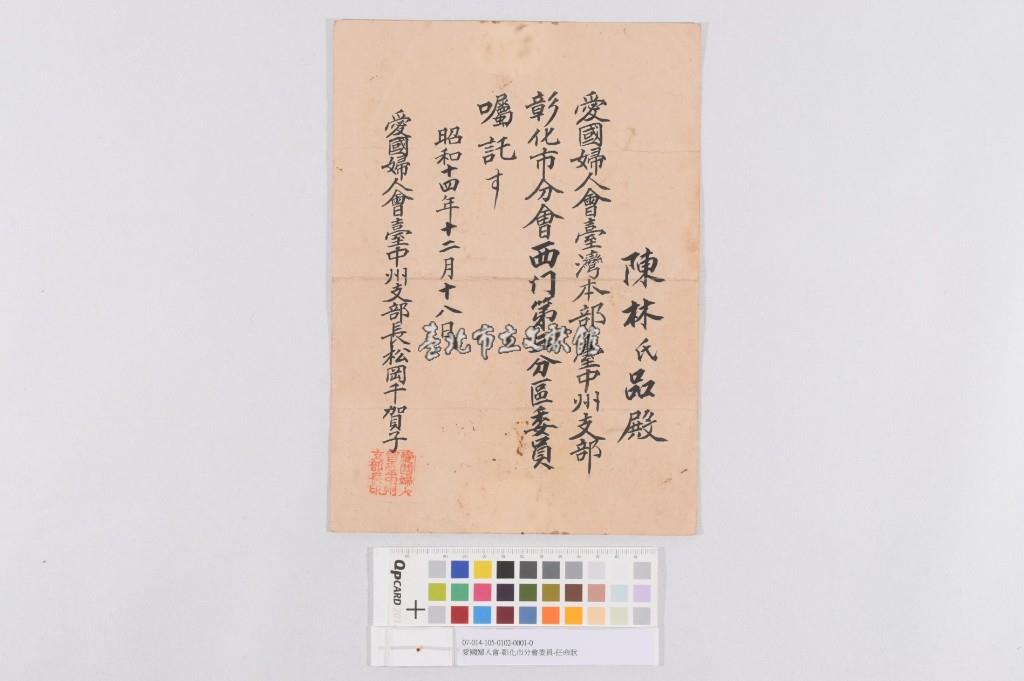 陳林氏品殿
愛國婦人會臺灣本部臺中州支部
彰化市分會西门第 分區委員
囑託す
昭和十四年十二月十八日
愛國婦人會臺中州支部長松岡千賀子
愛國婦人會臺中州支部長印
臺北市立文獻館
QPCARD
07-014-105-0102-0001-0
愛國婦人會-彰化市分會委員-任命狀